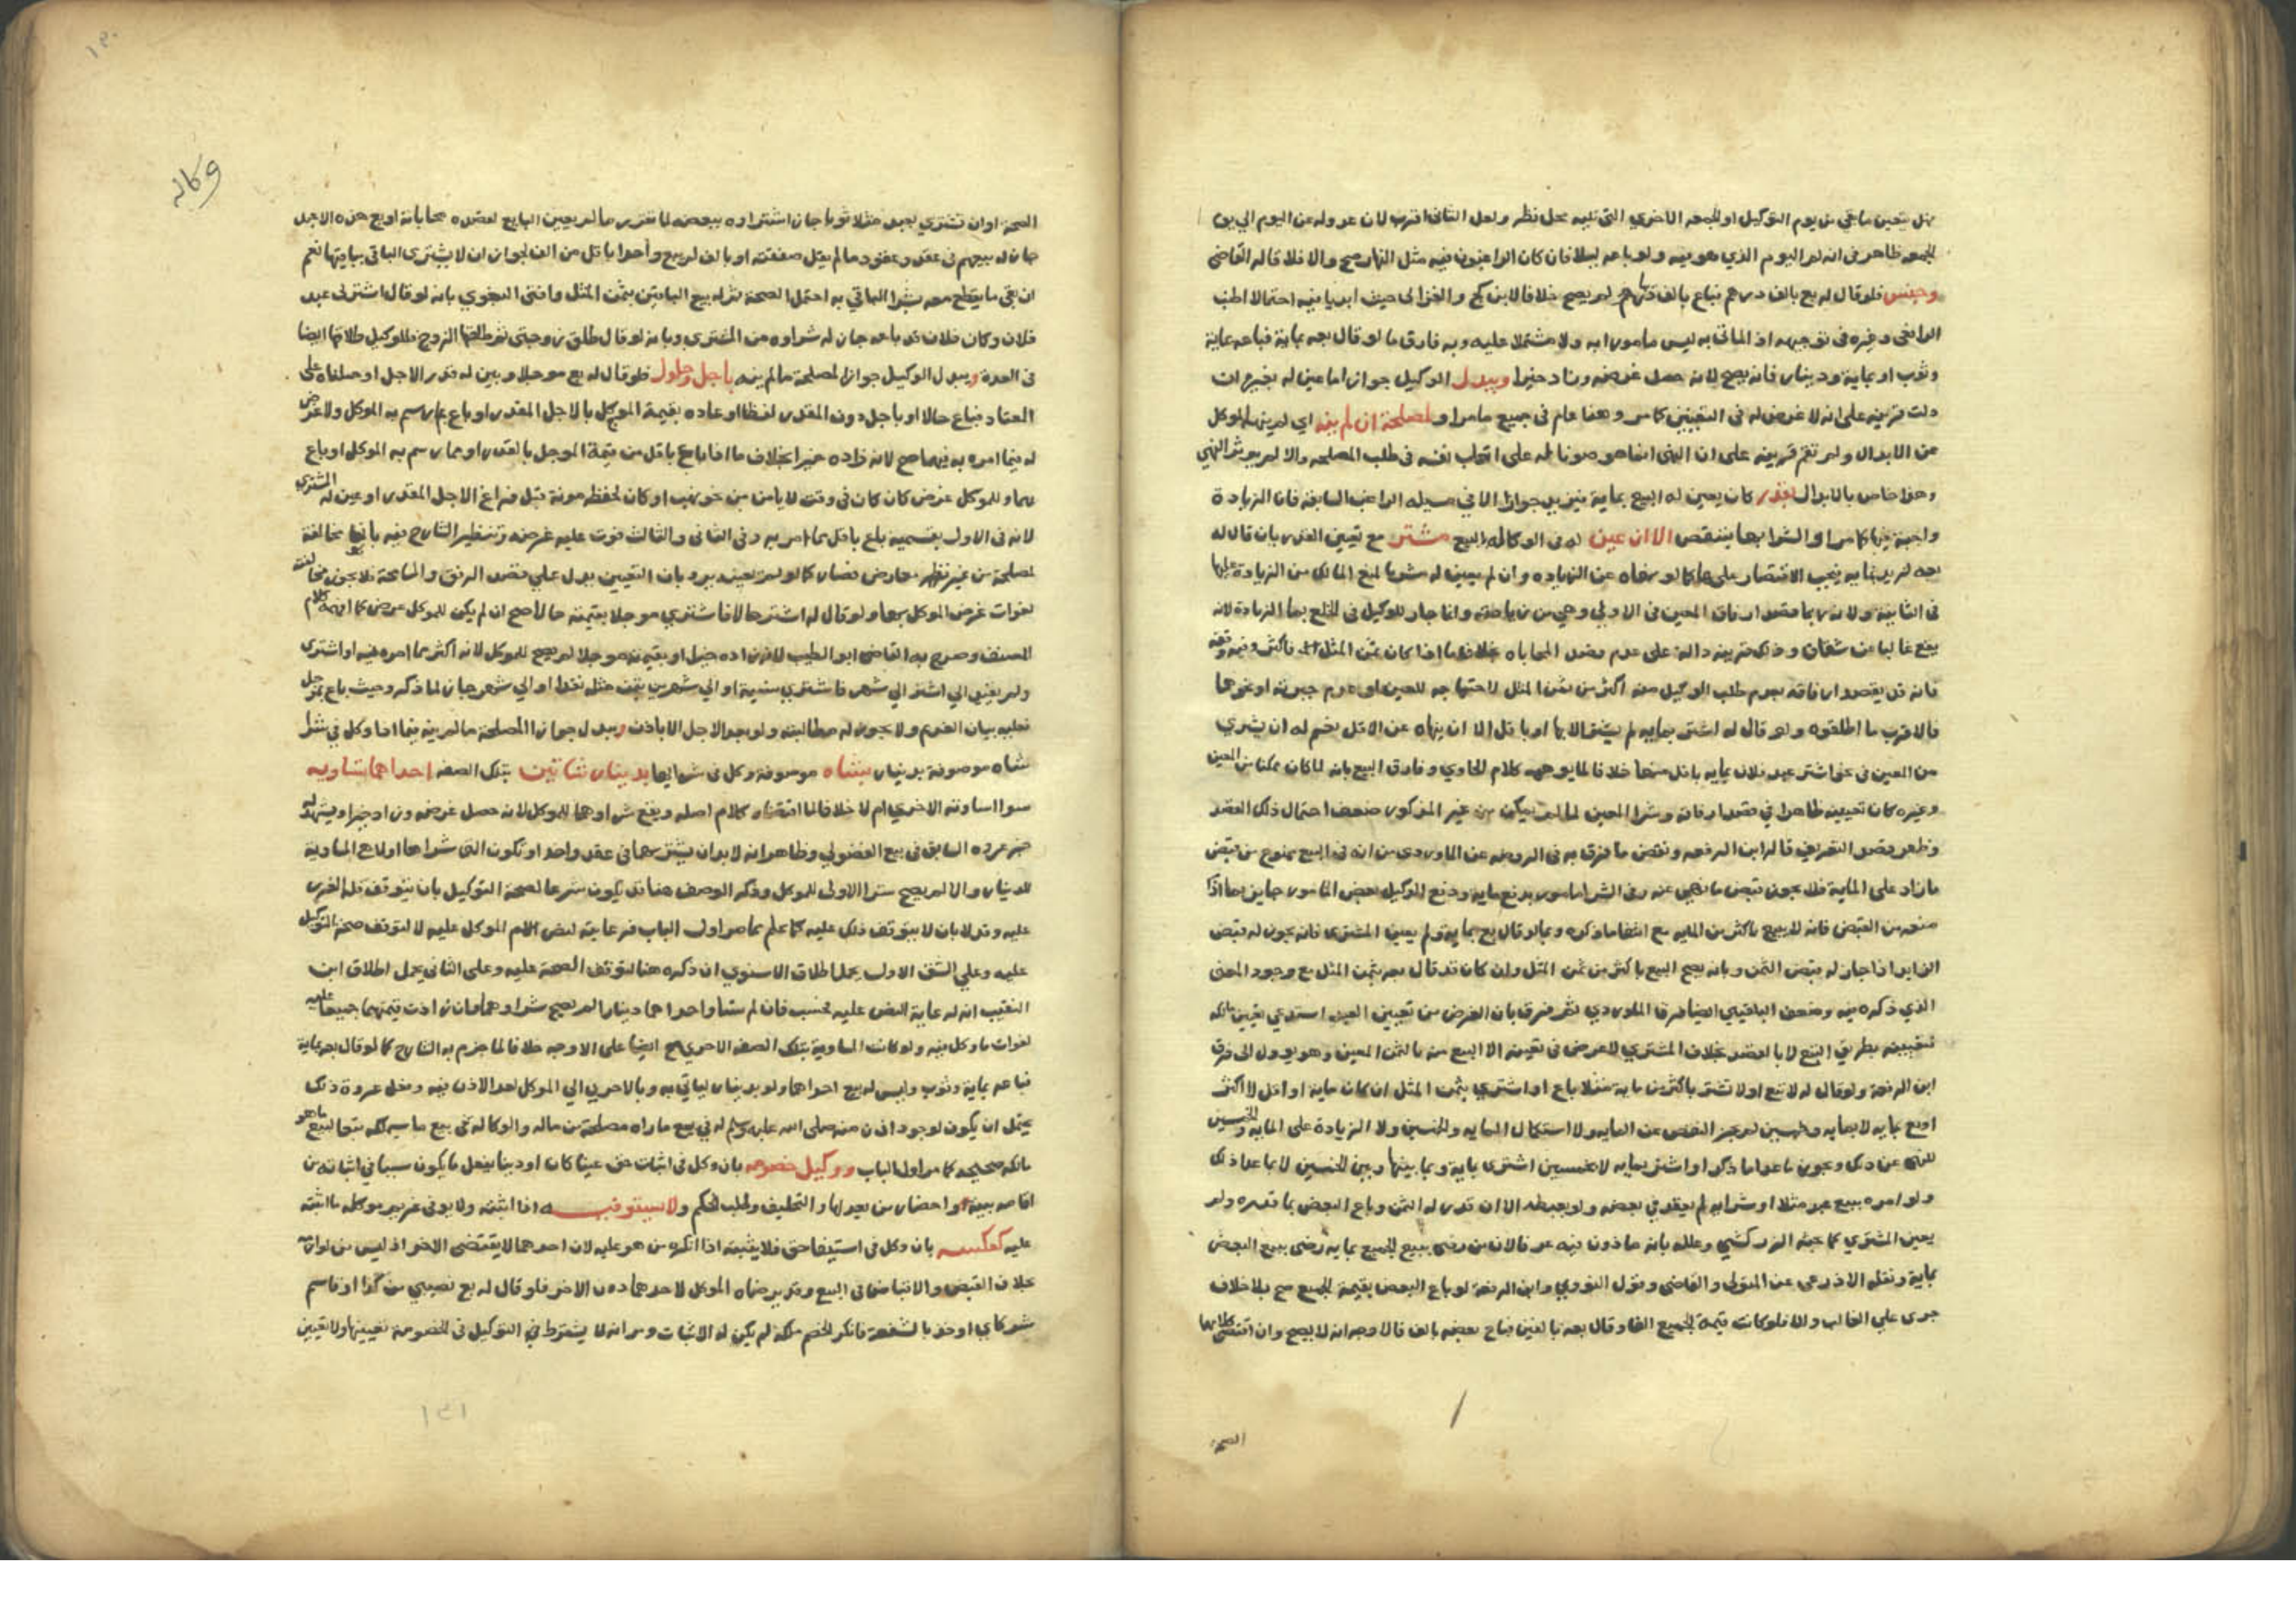 هل يتعين ما بقي من يوم التوكيل او الجمعة الاخرى التى تليه محل نظر ولعل الثانى اقرب لان عدوله عن اليوم الى يوم
الجمعة ظاهر فى انه لم اليوم الذي هو فيه ولو باعه ليلا فان كان الراغبون فيه مثل النهار صح والا فلا قاله القاضى
وجنس فلو قال له بع بالف درهم فباع بالف دينار لم يصح خلافا لابن كج والغزالى حيث ابديا فيه احتمالا اطنب
الرافعى وغيره فى توجيهه اذ الماتى به ليس مامورا به ولا مشتملا عليه وبه فارق ما لو قال بعه بماية فباعه بماية
وثوب او بماية ودينار فانه يصح لانه حصل غرضه وزاد خيرا ويبدل الوكيل جوازا ما عين له بخير ان
دلت قرينه على انه لا غرض له فى التعيين كما مر وهذا عام فى جميع ما مر او لمصلحة ان لم ينه اي لم ينه الموكل
عن الابدال ولم تقم قرينه على ان النهى انما هو صونا له على اتعاب نفسه فى طلب المصلحه والا لم يوثر النهي
وهذا خاص بالابدال بقدر كان يعين له البيع بماية فيزيد جوازا الا في مسيلة الراغب السابقة فان الزيادة
واجبة فيها كما مر او الشرا بها فينقص الا ان عين له فى الوكاله البيع مشتر مع تعيين القدر بان قال له
بعه لزيد بمايه فيجب الاقتصار عليها كما لو نهاه عن الزياده وان لم يعين له مشتريا لمنع المالك من الزيادة عليها
فى الثانية ولانه ربما قصد ارفاق المعين فى الاولى وانما جاز للوكيل فى الخلع بها الزيادة لانه
يقع غالبا عن شقاق وذلك قرينه دالة على عدم قصد المحاباه بخلاف ما اذا كان ثمن المثل فاكثر
فانه قد يقصد ارفاقه بعدم طلب الوكيل منه اكثر من ثمن المثل او نحوهما
فالاقرب ما اطلقوه ولو قال له اشتر بمايه لم يشتر الا بها او باقل الا ان ينهاه عن الاقل نعم له ان يشتري
من المعين فى نحو اشتر عبد فلان بمايه باقل منها خلافا لما يوهمه كلام الحاوي وفارق البيع بانه لما كان ممكنا من المعين
وغيره كان تعيينه ظاهرا في قصد ارفاقه وشرا المعين لما لم يمكن من غير المذكور ضعف احتمال ذلك القصد
وظهر قصد التعريف قاله ابن الرفعه ونقض ما فرق به فى الروضه عن الماوردى من انه فى البيع ممنوع من قبض
ما زاد على الماية فلا يجوز قبض ما نهى عنه وفى الشرا مامور بدفع مايه ودفع الوكيل بعض المامور جايز بما اذا
منعه من القبض فانه لا يبيع باكثر من المايه مع انتفا ما ذكره وبما لو قال بع بمايه ولم يعين المشترى فانه يجوز له قبض
الزايد اذا جاز له قبض الثمن وبانه يصح البيع باكثر من ثمن المثل وان كان قد قال بعه بثمن المثل مع وجود المعنى
الذي ذكره فيه وضعف البلقيني ايضا فرق الماوردي ثم فرق بان الغرض من تعيين العبد استدعي تعيين مالكه
فتعيينه بطريق التبع لا بالقصد بخلاف المشتري لا غرض فى تعيينه الا البيع منه بالثمن المعين وهو يوول الى فرق
ابن الرفعة ولو قال له لا تبع او لا تشتر باكثر من ماية مثلا باع او اشترى بثمن المثل ان كان ماية او اقل لا اكثر
او بع بمايه لا بمايه وخمسين لم يجز النقص عن المايه ولا استكمال المايه والخمسين ولا الزيادة على المايه والخمسين
للنهى عن ذلك ويجوز ما عدا ما ذكر او اشتر بمايه لا بخمسين اشترى بماية وبما بينها وبين الخمسين لا بما عدا ذلك
ولو امره ببيع عبد مثلا او شرايه لم يعقد في بعضه الا ان قدر له الثمن وباع البعض بما قدره ولم
يعين المشتري كما بحثه الزركشي وعلله بانه ماذون فيه عرفا لان من رضى ببيع الجميع بماية رضى ببيع البعض
بماية ونقله الاذرعى عن المتولى والقاضى وقول النووي وابن الرفعة لو باع البعض بقيمة الجميع صح بلا خلاف
جرى على الغالب والا فلو كانت قيمة الجميع الفا وقال بعه بالفين فباع بعضه بالف فالاوجه انه لا يصح وان اقتضى كلامهما
الصحة
وكاله
الصحة او ان تشتري بعبد مثلا ثوبا جاز اشتراوه ببعضه لما تقرر ما لم يعين البايع لقصده محاباته او بع هذه الاعبد
جاز له بيعهم فى عقد وعقود ما لم يقل صفقته او بالف لم يبع واحدا باقل من الف لجواز ان لا يشترى الباقى ببقيتها نعم
ان بقى ما يقطع معه بشرا الباقي به احتمل الصحة ثم له بيع الباقين بثمن المثل وافتى البغوي بانه لو قال اشتر لى عبد
فلان وكان فلان قد باعه جاز له شراوه من المشترى وبانه لو قال طلق زوجتى ثم طلقها الزوج فللوكيل طلاقها ايضا
فى العدة ويبدل الوكيل جوازا لمصلحة ما لم ينه باجل وحلول فلو قال له بع موجلا وبين له قدر الاجل او حملناه على
المعتاد فباع حالا او باجل دون المقدر لفظا او عاده بقيمة الموجل بالاجل المقدر او باع بما رسم به الموكل ولا غرض
له فيما امره به فيهما صح لانه زاده خيرا بخلاف ما اذا باع باقل من قيمة الموجل بالقدر او مما رسم به الموكل او باع
بهما وللموكل غرض كان كان فى وقت لا يامن من خو نهب او كان لحفظه مونة قبل فراغ الاجل المقدر او عين له المشترى
لانه فى الاول بقسميه باع باقل مما امر به وفى الثانى والثالث فوت عليه غرضه وتنظير الشارح فيه بانها مخالفة
لمصلحة من غير نظر معارض فصار كما لو لم يعينه يرد بان التعيين يدل علي قصد الرفق والمسامحة فلا يجوز مخالفته
لفوات غرض الموكل بها ولو قال له اشتر حالا فاشترى موجلا بقيمته حالا صح ان لم يكن للموكل غرض كما افهمه كلام
المصنف وصرح به القاضى ابو الطيب لانه زاده خيرا او بقيمته موجلا لم يصح للموكل لانه اكثر مما امره فيه او اشترى
ولم يعين الى اشتر الي شهر فاشترى بنسية او الي شهرين بثمن مثله نقدا او الي شهر جاز لما ذكر وحيث باع بموجل
فعليه بيان الغريم ولا يجوز له مطالبته ولو بعد الاجل الا باذن ويبدل جوازا لمصلحة ما لم ينه فيما اذا وكل في شرا
شاه موصوفة بدينار بشاه موصوفة وكل فى شرايها بدينار شاتين بتلك الصفه احداهما تساويه
سوا اساوته الاخرى ام لا خلافا لما اقتضاه كلام اصله ويقع شراوهما للموكل لانه حصل غرضه وزاد خيرا ويشهد له
خبر عروه السابق فى بيع الفضولي وظاهره انه لا بد ان يشتريهما فى عقد واحد او تكون التى شراها اولا هى المساوية
للدينار والا لم يصح شرا الاولى للموكل وذكر الوصف هنا قد يكون شرطا لصحة التوكيل بان يتوقف قلة الغرر
عليه وقد لا بان لا يتوقف ذلك عليه كما علم مما مر اول الباب فرعايته لنص الامام الموكل عليه لا لتوقف صحة التوكيل
عليه وعلى الشق الاول يحمل اطلاق الاسنوي ان ذكره هنا لتوقف الصحة عليه وعلى الثانى يحمل اطلاق ابن
النقيب انه لرعاية النص عليه فحسب فان لم تساو احداهما دينارا لم يصح شراوهما وان زادت قيمتهما جميعا عليه
لفوات ما وكل فيه ولو كانت المساوية بتلك الصفه الاخرى صح ايضا على الاوجه خلافا لما جزم به الشارح كما لو قال بعه بماية
فباعه بماية وثوب وليس له بيع احداهما ولو بدينار لياتي به وبالاخرى الي الموكل لعدم الاذن فيه وفعل عروة ذلك
يحتمل ان يكون لوجود اذن منه صلى الله عليه وسلم له في بيع ما راه مصلحة من ماله والوكاله فى بيع ما سيملكه تبعا لبيع ما هو
مالكه صحيحه كما مر اول الباب ووكيل خصومه بان وكل فى اثبات حق عينا كان او دينا يفعل ما يكون سببا في اثباته من
اقامه بينة واحضار من يعدلها والتحليف وطلب الحكم ولا يستوفيه اذا اثبته ولا يوفى غريم موكله ما اثبته
عليه كعكسه بان وكل فى استيفا حق فلا يثبته اذا انكره من هو عليه لان احدهما لا يقتضى الاخر اذ ليس من لوازمه
بخلاف القبض والاقباض فى البيع وقد يرضاه الموكل لاحدهما دون الاخر فلو قال له بع نصيبي من كذا او قاسم
شركاي او خذ بالشفعة فانكر الخصم ملكه لم يكن له الاثبات ومر انه لا يشترط في التوكيل فى الخصومة تعيينها ولا تعيين
١٣١